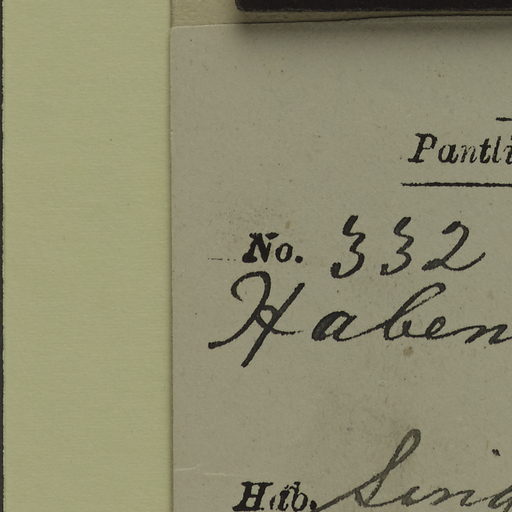 Pantli
No. 332
Haben
Hab. Sing